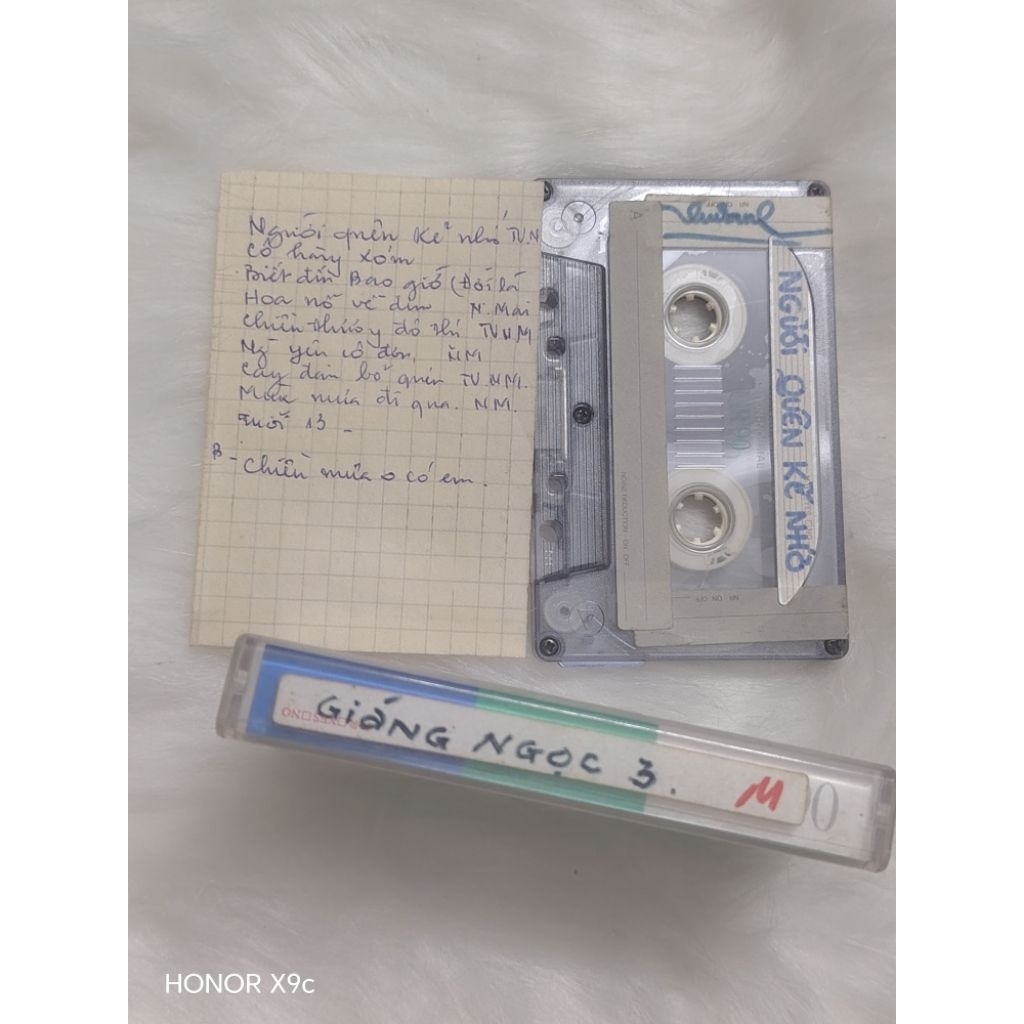 Người quên Kẻ nhớ TV.N
Cô hàng xóm
Biết đến Bao giờ (Đôi lá
Hoa nở về đêm N. Mai
Chiều thương đô thị TV NM
Ngỡ yêu cô đơn NM
Cây đàn bỏ quên TV.NM.
Mùa mưa đi qua. NM.
Tuổi 13 -
B - Chiều mưa o có em.
A
NR ON OFF
NGƯỜI QUÊN KẺ NHỚ
NOISE REDUCTION ON OFF
NR ON OFF
GIÁNG NGỌC 3. M
YES □ NO
HONOR X9c